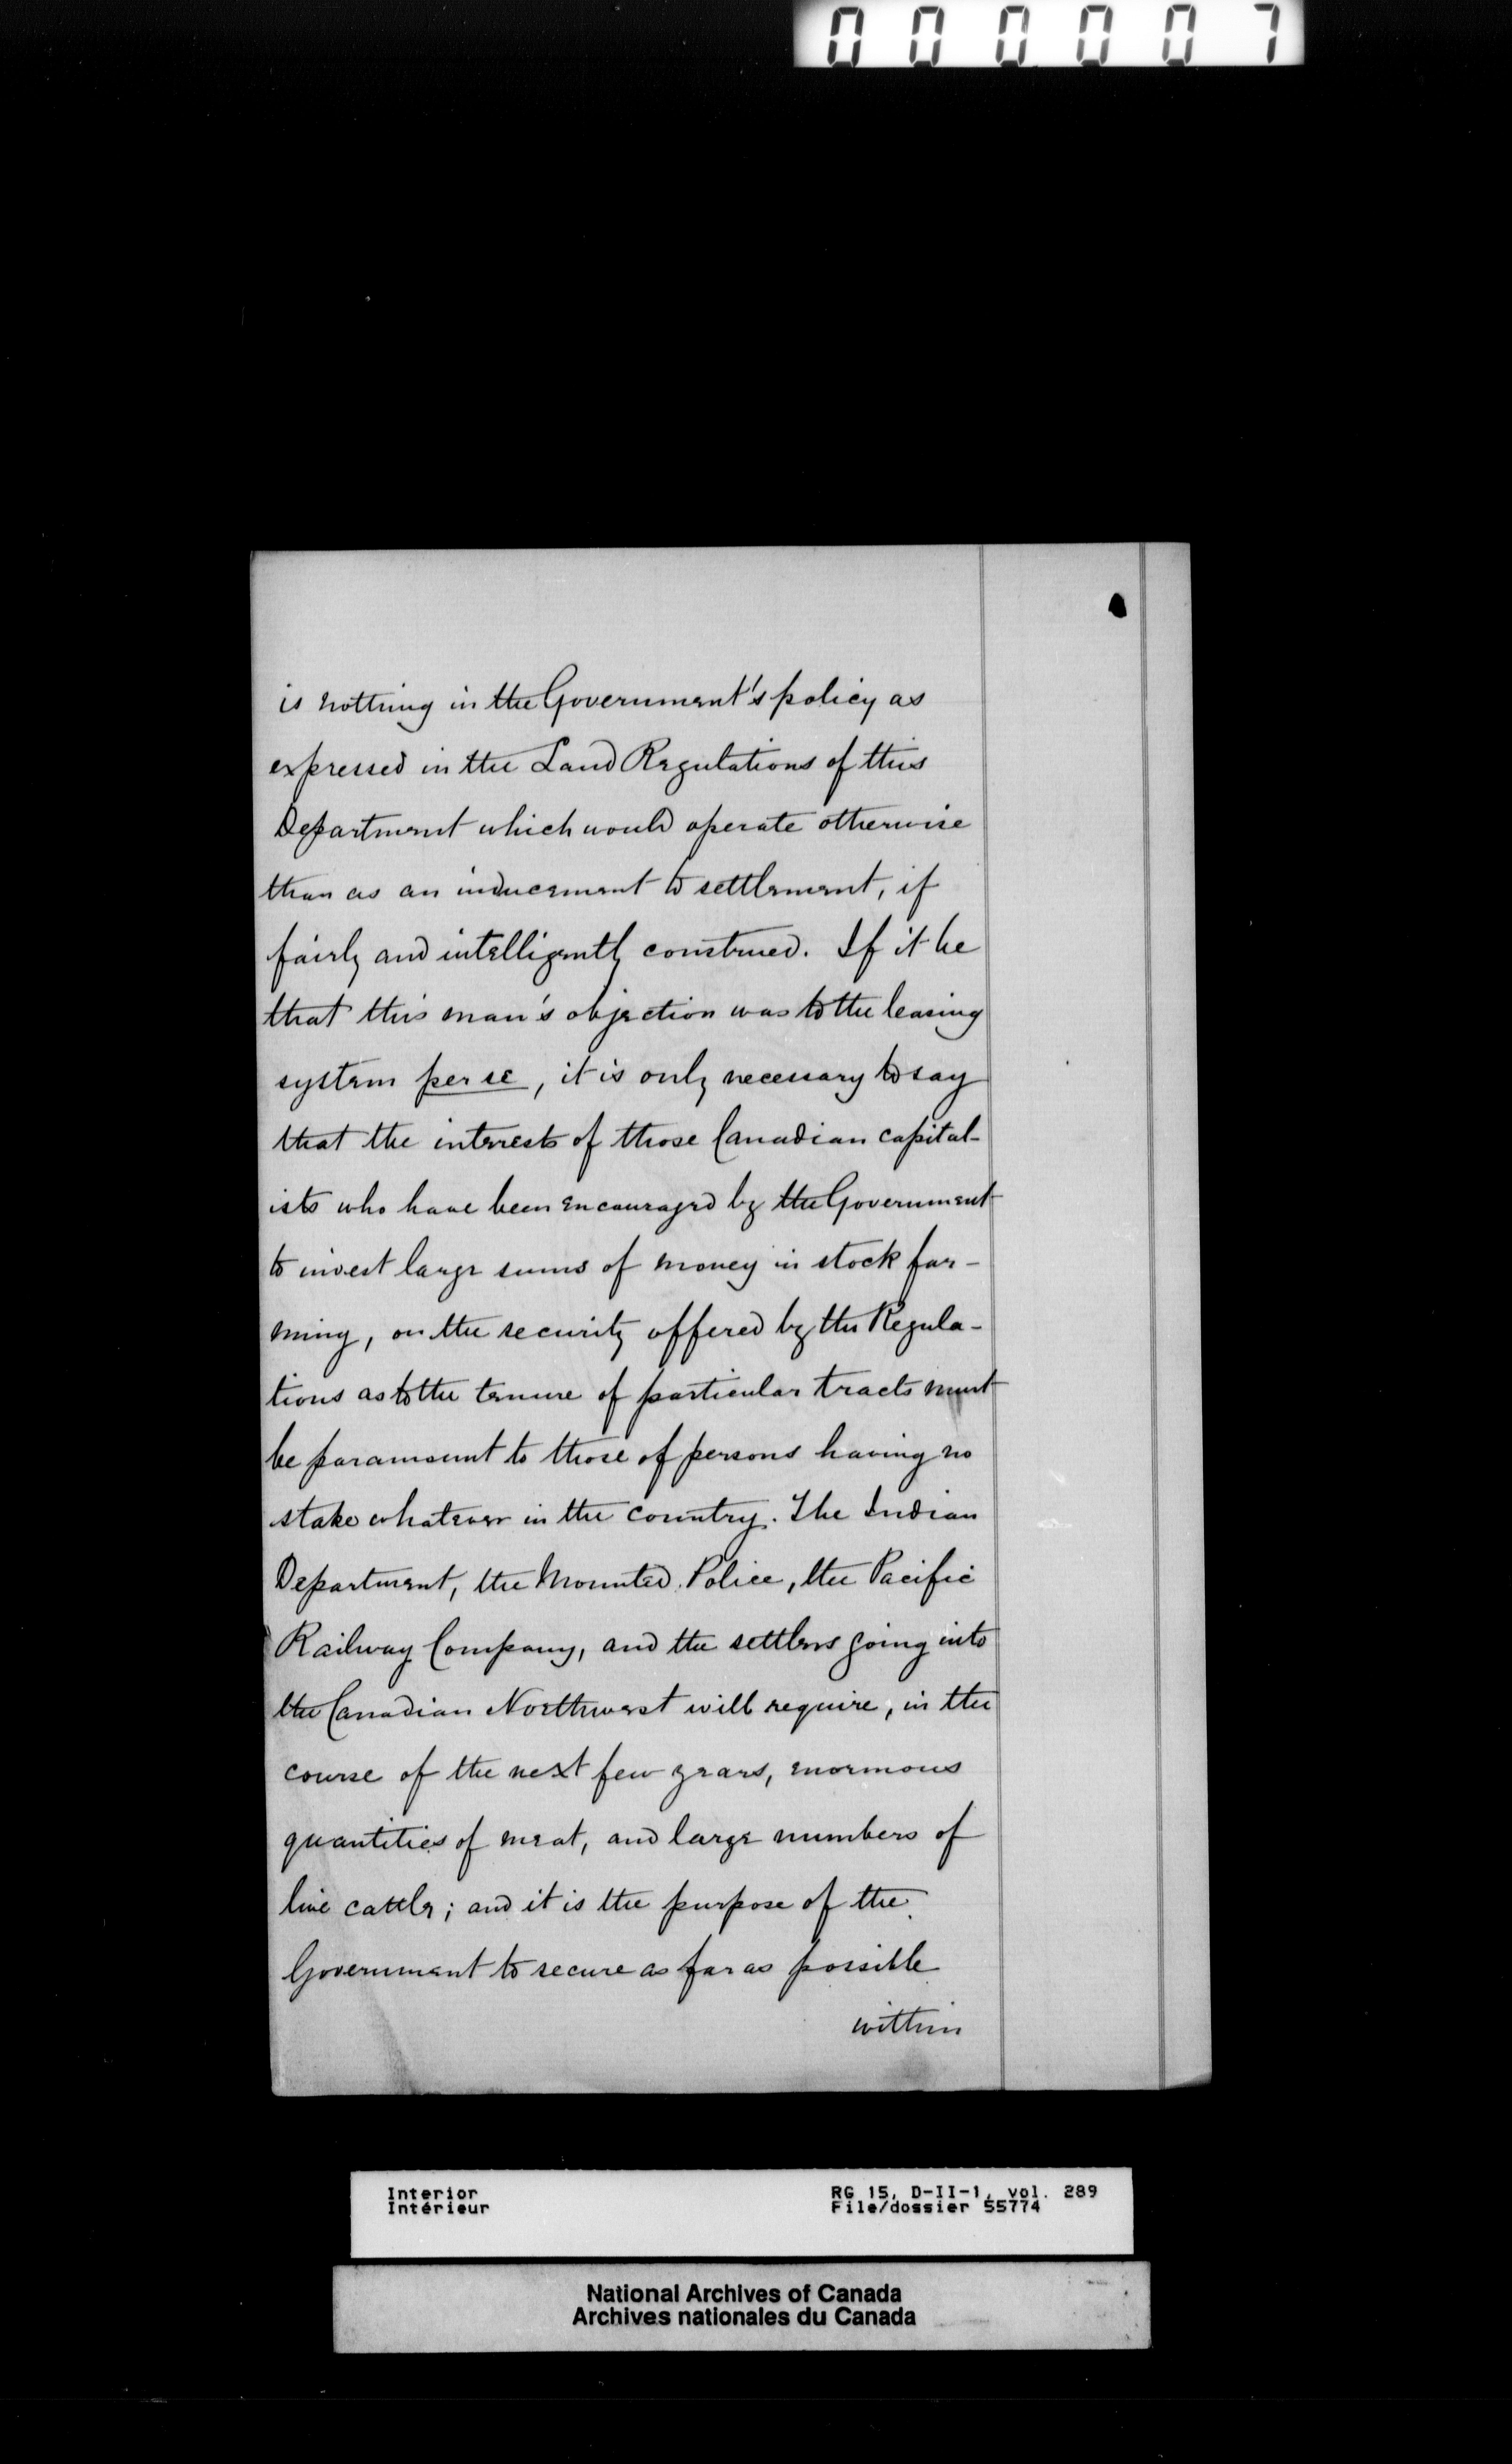 000007
is nothing in the Government's policy as
expressed in the Land Regulations of this
Department which would operate otherwise
than as an inducement to settlement, if
fairly and intelligently construed. If it be
that this man's objection was to the leasing
system per se, it is only necessary to say
that the interests of those Canadian capital-
ists who have been encouraged by the Government
to invest large sums of money in stock far-
ming, on the security offered by the Regula-
tions as to the tenure of particular tracts must
be paramount to those of persons having no
stake whatever in the country. The Indian
Department, the Mounted Police, the Pacific
Railway Company, and the settlers going into
the Canadian Northwest will require, in the
course of the next few years, enormous
quantities of meat, and large numbers of
live cattle; and it is the purpose of the
Government to secure as far as possible
within
Interior
Intérieur
RG 15, D-II-1, vol. 289
File/dossier 55774
National Archives of Canada
Archives nationales du Canada